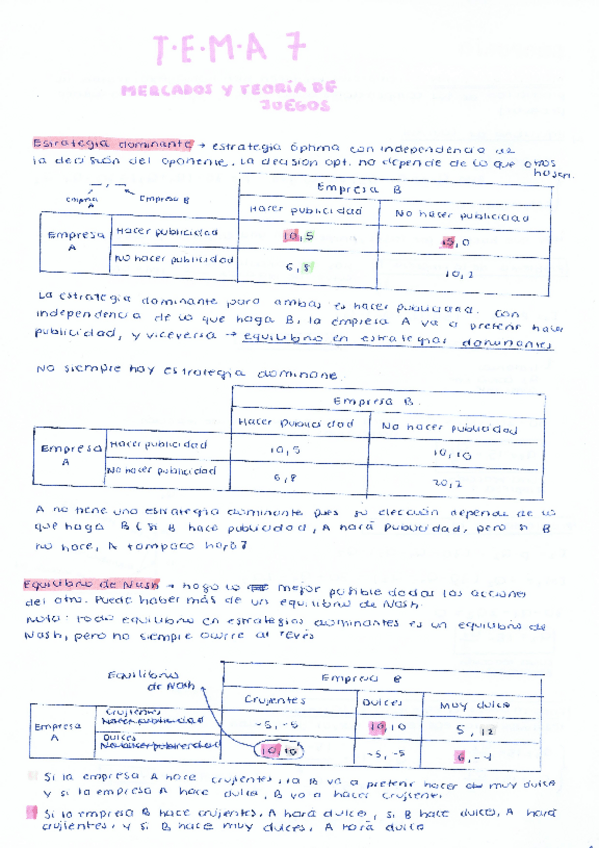 T·E·M·A 7
MERCADOS Y TEORÍA DE
JUEGOS
Estrategia dominante → estrategia óptima con independencia de
la decisión del oponente. La decisión opt. no depende de lo que otros
hagan.
Empresa B
Empresa B
Hacer publicidad No hacer publicidad
Empresa A Hacer publicidad 10,5 15,0
No hacer publicidad 6,8 10,2
La estrategia dominante para ambas es hacer publicidad. Con
independencia de lo que haga B, la empresa A va a preferir hacer
publicidad, y viceversa → equilibrio en estrategias dominantes
No siempre hay estrategia dominane.
Empresa B.
Hacer publicidad No hacer publicidad
Empresa A Hacer publicidad 10,5
No hacer publicidad 6,8 20,2
A no tiene una estrategia dominante pues su elección depende de lo
que haga B (si B hace publicidad, A hará publicidad, pero si B
no hace, A tampoco hará)
Equilibrio de Nash → hago lo mejor posible dadas las acciones
del otro. Puede haber más de un equilibrio de Nash.
Nota: Todo equilibrio en estrategias dominantes es un equilibrio de
Nash, pero no siempre ocurre al revés
Equilibrio
de Nash
Empresa B
Crujientes Dulces Muy dulce
Empresa A Crujientes -5,-5 10,10 5,12
Dulces 10,10 -5,-5 6,-4
Si la empresa A hace crujientes, la B va a preferir hacer muy dulce
y si la empresa A hace dulce, B va a hacer crujiente.
Si la empresa B hace crujientes, A hará dulce, si B hace dulces, A hará
crujientes, y si B hace muy dulces, A hará dulce